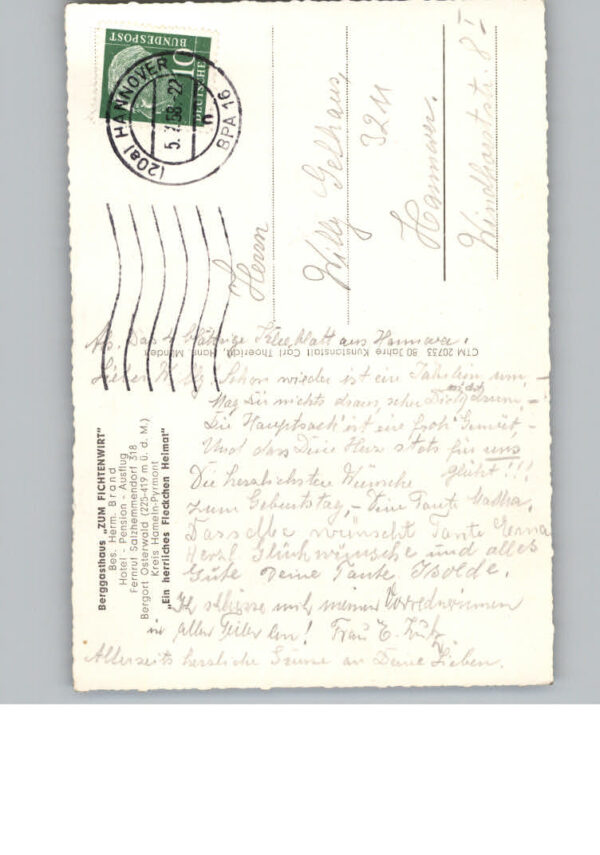 DEUTSCHE
BUNDESPOST
10
(20a) HANNOVER
5. 58 - 22
BPA 16
Herrn
Willy Gelhaus,
32
Hannover.
Windthorststr. 8 I
CTM 20753 80 Jahre Kunstanstalt Carl Thoericht, Hann. Münden
Berggasthaus „ZUM FICHTENWIRT"
Bes. Herm. Brand
Hotel - Pension - Ausflug
Fernruf Salzhemmendorf 318
Bergort Osterwald (225-419 m ü. d. M.)
Kreis Hameln-Pyrmont
„Ein herrliches Fleckchen Heimat"
Abs. Das 4 blättrige Kleeblatt aus Hannover.
Lieber Willy Schon wieder ist ein Jährlein um, -
Mach Dir nichts draus, scher Dich nicht drum, -
Die Hauptsach' ist eine froh' Gemüt, -
Und dass Dein Herz stets für uns
glüht!!!
Die herzlichsten Wünsche
zum Geburtstag, - Deine Tante Martha.
Dasselbe wünscht Tante Erna
Herzl. Glückwünsche und alles
Gute Deine Tante Isolde.
Ich schliesse mich meinen Vorrednerinnen
in allen Teilen an! Frau E.
Allerseits herzliche Grüsse an Deine Lieben.